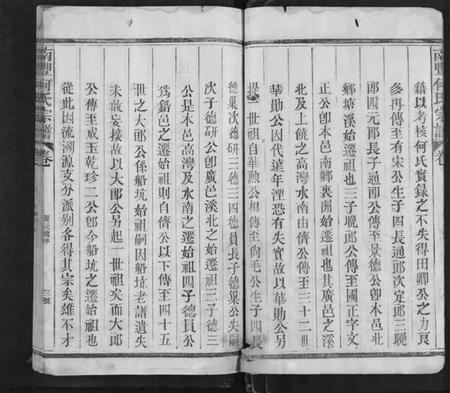 南豐何氏宗譜 卷
籍以考核何氏實錄之不失得田卿公之力良
多再傳至有宋公生子四長通郎次定郎三晚
郎四元郎長子通郎公傳至景德公卽本邑北
鄉塘溪始遷祖也三子晚郎公傳至國正字文
正公卽本邑南鄉裏洲始遷祖也其廣邑之溪
北及上饒之高灣水南由儕公傳至三十二世
華勛公因代遠年湮恐有失實故以華勛公另
提一世祖自華勛公相傳至尙毛公生子四長
德巢次德研三德三四德員長子德巢公失嗣
次子德研公卽廣邑溪北之始遷祖三子德三
公是本邑高灣及水南之遷始祖四子德員公
爲鉛邑之遷始祖則自儕公以下傳至四十五
世之大郎公係船坑始祖嗣因船坑老譜遺失
未敢妄接故以大郎公另起一世祖矣而大郎
公傳至咸玉乾珍二公卽今船坑之遷始祖也
從此因流溯源支分派別各得其宗矣雖不才
南豐何氏宗譜 卷
三號